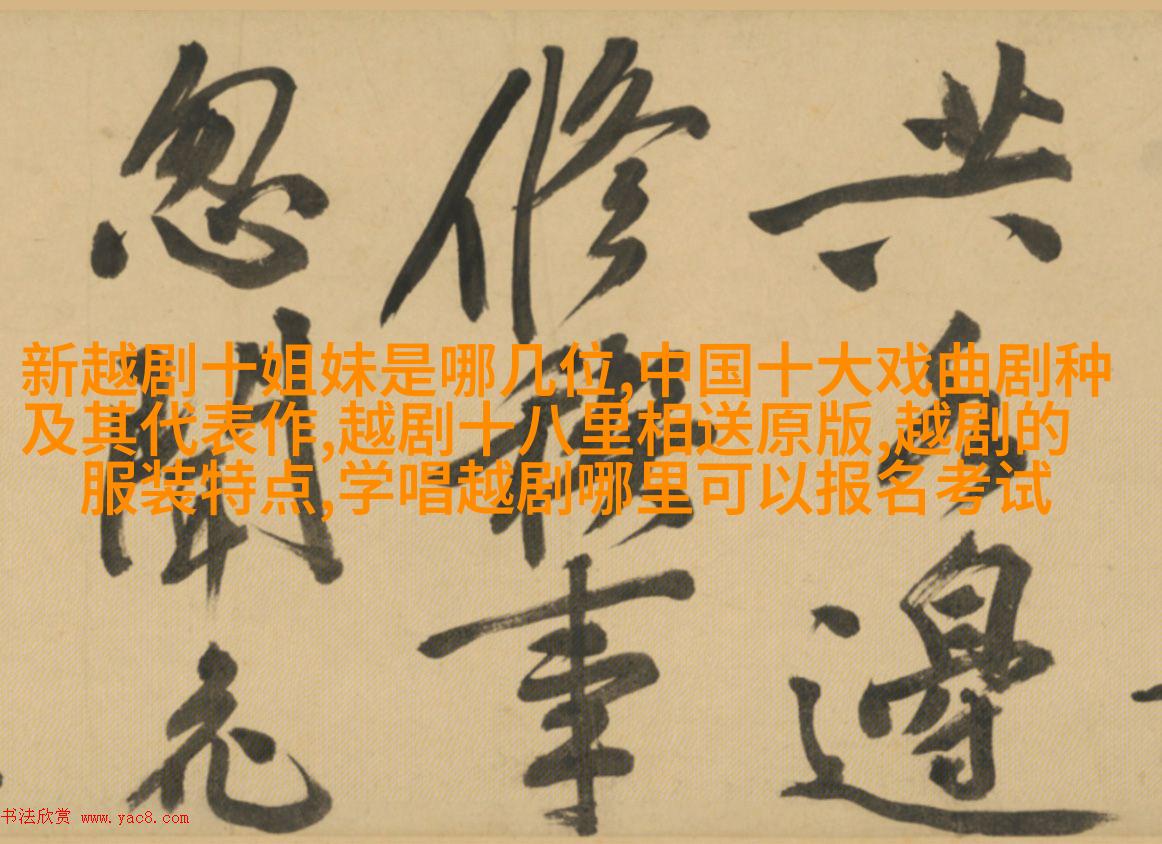 新越剧十姐妹是哪几位,中国十大戏曲剧种
及其代表作,越剧十八里相送原版,越剧的
服装特点,学唱越剧哪里可以报名考试
共邊
修稧事
忽聞
书法欣赏 www.yac8.com